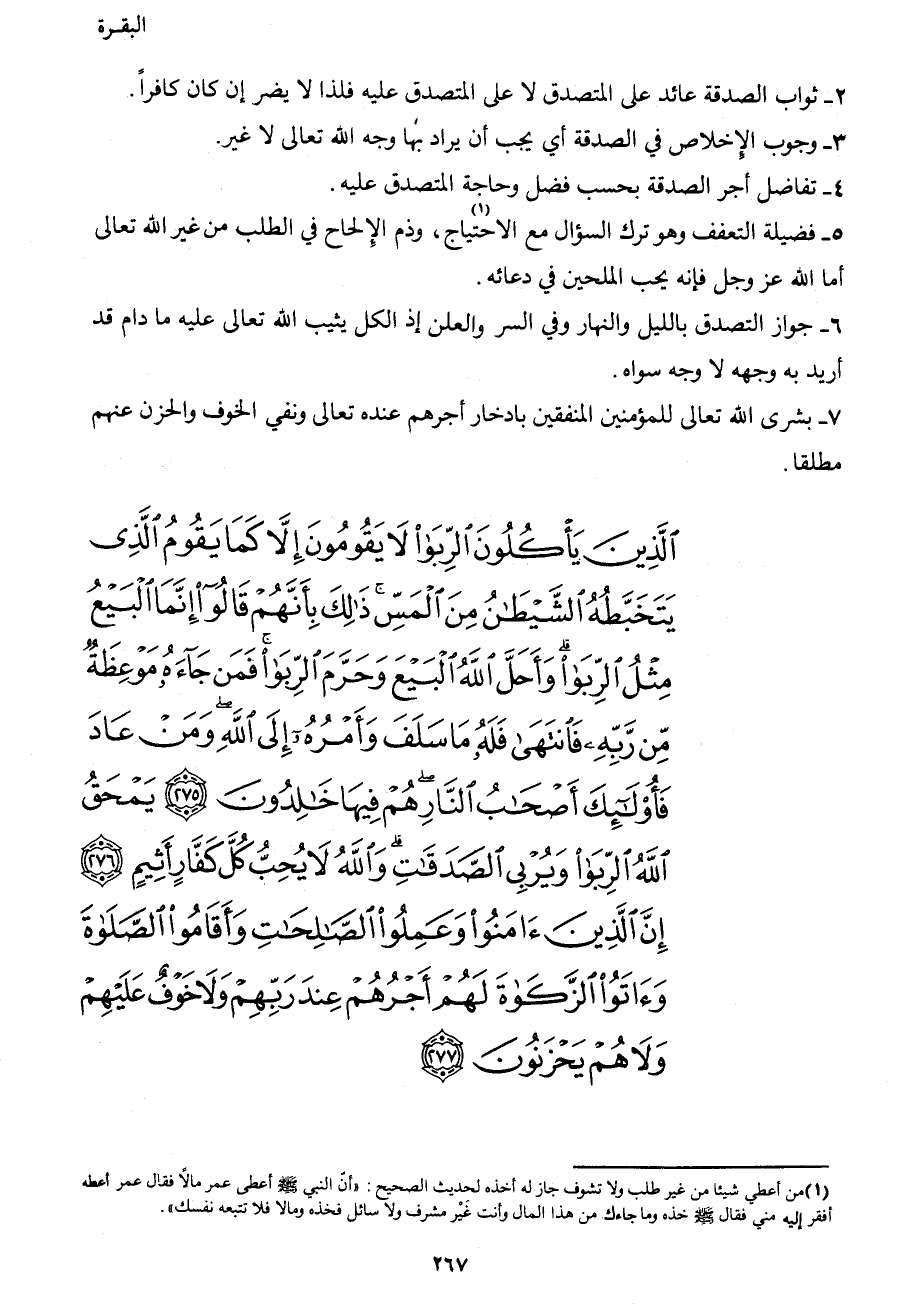 البقرة
٢ـ ثواب الصدقة عائد على المتصدق لا على المتصدق عليه فلذا لا يضر إن كان كافراً.
٣ـ وجوب الإخلاص في الصدقة أي يجب أن يراد بها وجه الله تعالى لا غير.
٤ـ تفاضل أجر الصدقة بحسب فضل وحاجة المتصدق عليه.
٥ـ فضيلة التعفف وهو ترك السؤال مع الاحتياج(١)، وذم الإلحاح في الطلب من غير الله تعالى
أما الله عز وجل فإنه يحب الملحين في دعائه.
٦ـ جواز التصدق بالليل والنهار وفي السر والعلن إذ الكل يثيب الله تعالى عليه ما دام قد
أريد به وجهه لا وجه سواه.
٧ـ بشرى الله تعالى للمؤمنين المنفقين بادخار أجرهم عنده تعالى ونفي الخوف والحزن عنهم
مطلقا.
ٱلَّذِينَ يَأْكُلُونَ ٱلرِّبَوٰا۟ لَا يَقُومُونَ إِلَّا كَمَا يَقُومُ ٱلَّذِى
يَتَخَبَّطُهُ ٱلشَّيْطَٰنُ مِنَ ٱلْمَسِّ ۚ ذَٰلِكَ بِأَنَّهُمْ قَالُوٓا۟ إِنَّمَا ٱلْبَيْعُ
مِثْلُ ٱلرِّبَوٰا۟ ۗ وَأَحَلَّ ٱللَّهُ ٱلْبَيْعَ وَحَرَّمَ ٱلرِّبَوٰا۟ ۚ فَمَن جَآءَهُۥ مَوْعِظَةٌ
مِّن رَّبِّهِۦ فَٱنتَهَىٰ فَلَهُۥ مَا سَلَفَ وَأَمْرُهُۥٓ إِلَى ٱللَّهِ ۖ وَمَنْ عَادَ
فَأُو۟لَٰٓئِكَ أَصْحَٰبُ ٱلنَّارِ ۖ هُمْ فِيهَا خَٰلِدُونَ ٢٧٥ يَمْحَقُ
ٱللَّهُ ٱلرِّبَوٰا۟ وَيُرْبِى ٱلصَّدَقَٰتِ ۗ وَٱللَّهُ لَا يُحِبُّ كُلَّ كَفَّارٍ أَثِيمٍ ٢٧٦
إِنَّ ٱلَّذِينَ ءَامَنُوا۟ وَعَمِلُوا۟ ٱلصَّٰلِحَٰتِ وَأَقَامُوا۟ ٱلصَّلَوٰةَ
وَءَاتَوُا۟ ٱلزَّكَوٰةَ لَهُمْ أَجْرُهُمْ عِندَ رَبِّهِمْ وَلَا خَوْفٌ عَلَيْهِمْ
وَلَا هُمْ يَحْزَنُونَ ٢٧٧
(١) من أعطي شيئا من غير طلب ولا تشوف جاز له أخذه لحديث الصحيح: «أنّ النبي ﷺ أعطى عمر مالًا فقال عمر أعطه
أفقر إليه مني فقال ﷺ خذه وما جاءك من هذا المال وأنت غَيْر مشرف ولا سائل فخذه ومالا فلا تتبعه نفسك».
٢٦٧